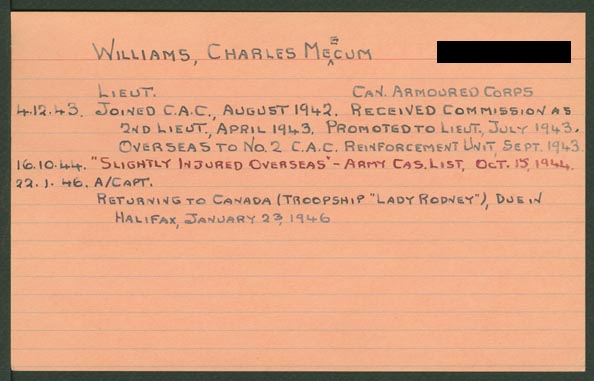 WILLIAMS, CHARLES MECUM
LIEUT. CAN. ARMOURED CORPS
4.12.43. JOINED C.A.C., AUGUST 1942. RECEIVED COMMISSION AS
2ND LIEUT., APRIL, 1943. PROMOTED TO LIEUT., JULY, 1943.
OVERSEAS TO NO. 2 C.A.C. REINFORCEMENT UNIT, SEPT. 1943
16.10.44. "SLIGHTLY INJURED OVERSEAS" - ARMY CAS. LIST, OCT. 15, 1944.
22.1.46. A/CAPT.
RETURNING TO CANADA (TROOPSHIP "LADY RODNEY"), DUE IN
HALIFAX, JANUARY 23, 1946